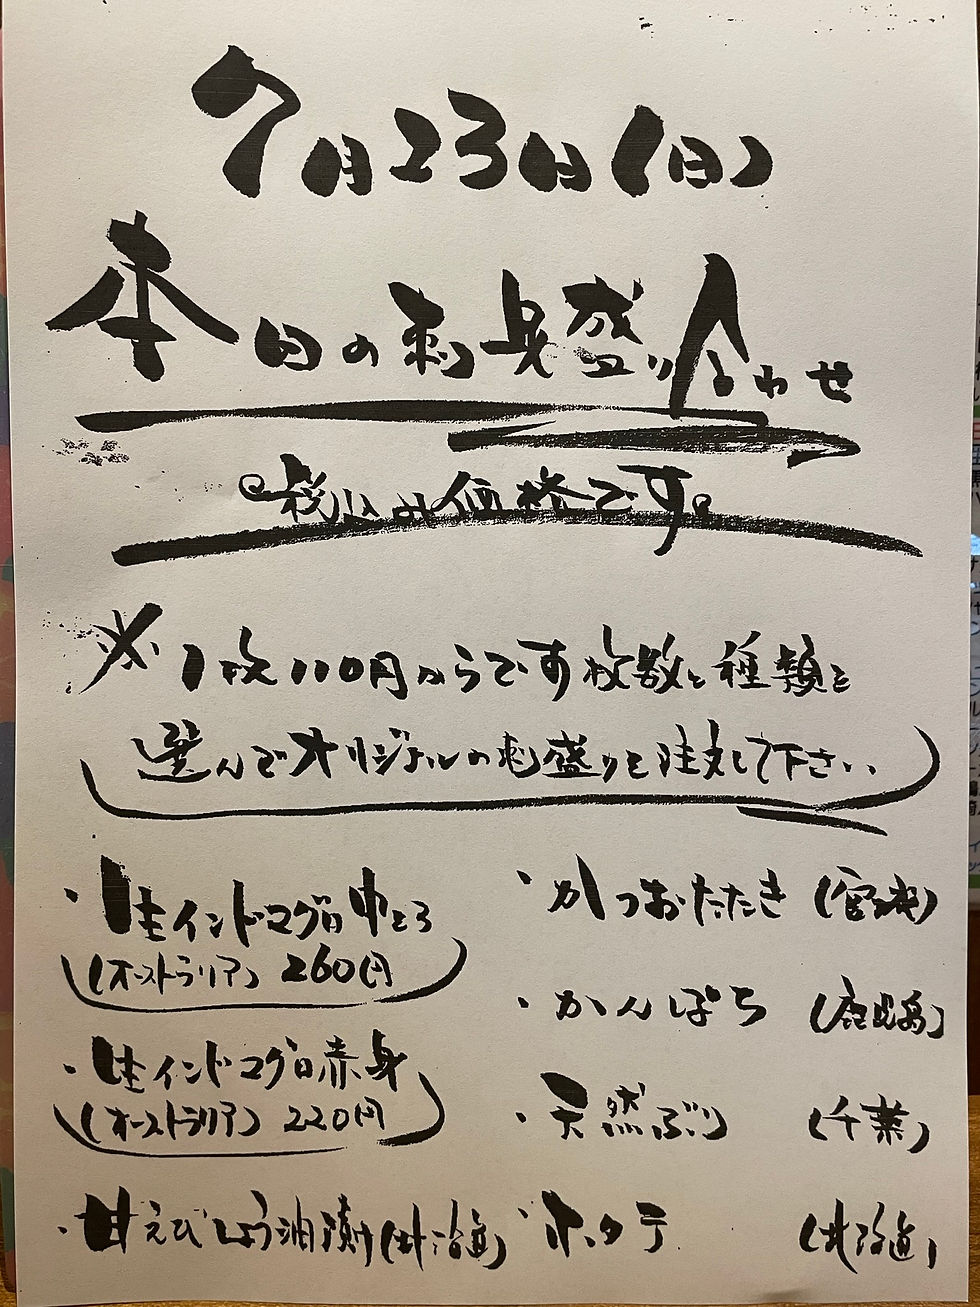 7月23日(日)
本日の刺身盛り合わせ
税込み価格です。
※1枚110円からです枚数と種類を
選んでオリジナルの刺盛りを注文して下さい
・生インドマグロ中とろ
(オーストラリア) 260円
・生インドマグロ赤身
(オーストラリア) 220円
・甘えびしょう油漬け(北海道)
・かつおたたき (宮城)
・かんぱち (鹿児島)
・天然ぶり (千葉)
・ホタテ (北海道)